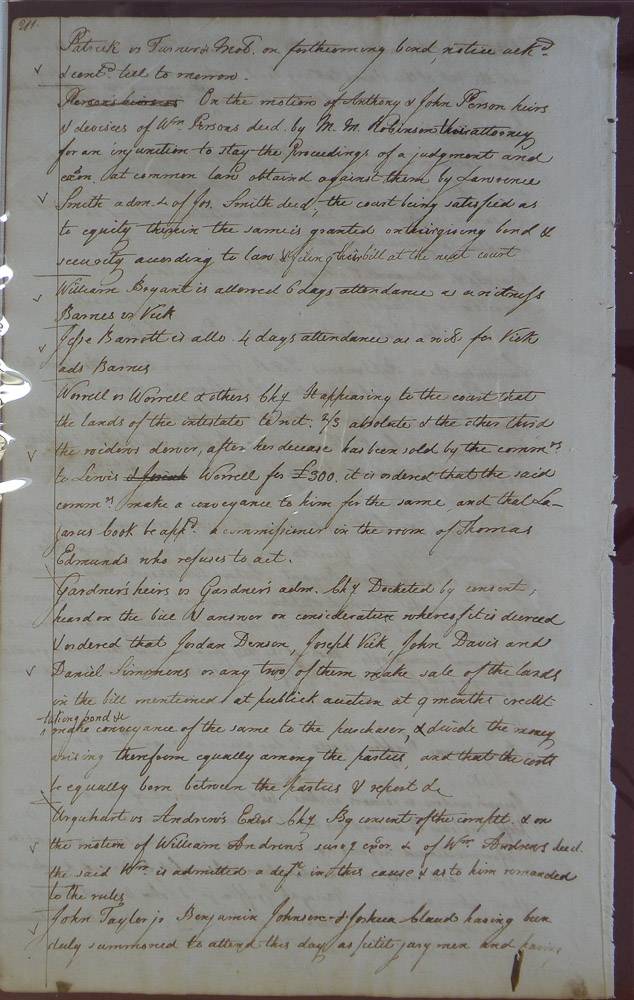 211.
Patrick vs Turner & Mod. on forthcoming bond, notice ackd.
& contd. till to morrow.
Persons heirs vs On the motion of Anthony & John Person heirs
& devisees of Wm. Persons decd. by M. M. Robinson their attorney
for an injunction to stay the proceedings of a judgment and
exon. at common law obtaind against them by Lawrence
Smith adm. & of Jos. Smith decd, the court being satisfied as
to equity therein the same is granted on their giving bond &
security according to law & filing their bill at the next court
William Bryant is allowed 6 days attendance as a witness
Barnes vs Vick
Jesse Barrott is allo. 4 days attendance as a wit. for Vick
ads Barnes
Worrell vs Worrell & others Chy It appearing to the court that
the lands of the intestate to wit. 2/3 absolute & the other third
the widows dower, after her decease has been sold by the commrs
to Lewis & Josiah Worrell for £300. it is ordered that the said
commrs make a conveyance to him for the same and that La-
zarus Cook be appd. a commissioner in the room of Thomas
Edmunds who refuses to act.
Gardner's heirs vs Gardner's adm. Chy Docketed by consent,
heard on the bill & answer on consideration whereof it is decreed
& ordered that Jordan Denson, Joseph Vick, John Davis and
Daniel Simmons or any two of them make sale of the lands
in the bill mentioned at publick auction at 9 months credit
taking bond &c
make conveyance of the same to the purchaser, & divide the money
arising therefrom equally among the parties, and that the costs
be equally born between the parties & report &c
Urquhart vs Andrews Exors Chy By consent of the complt. & on
the motion of William Andrews survg exor. & of Wm. Andrews decd.
the said Wm. is admitted a deft. in this cause & as to him remanded
to the rules
John Taylor jr Benjamin Johnson & Joshua Claud having been
duly summoned to attend this day as petit jury men and having